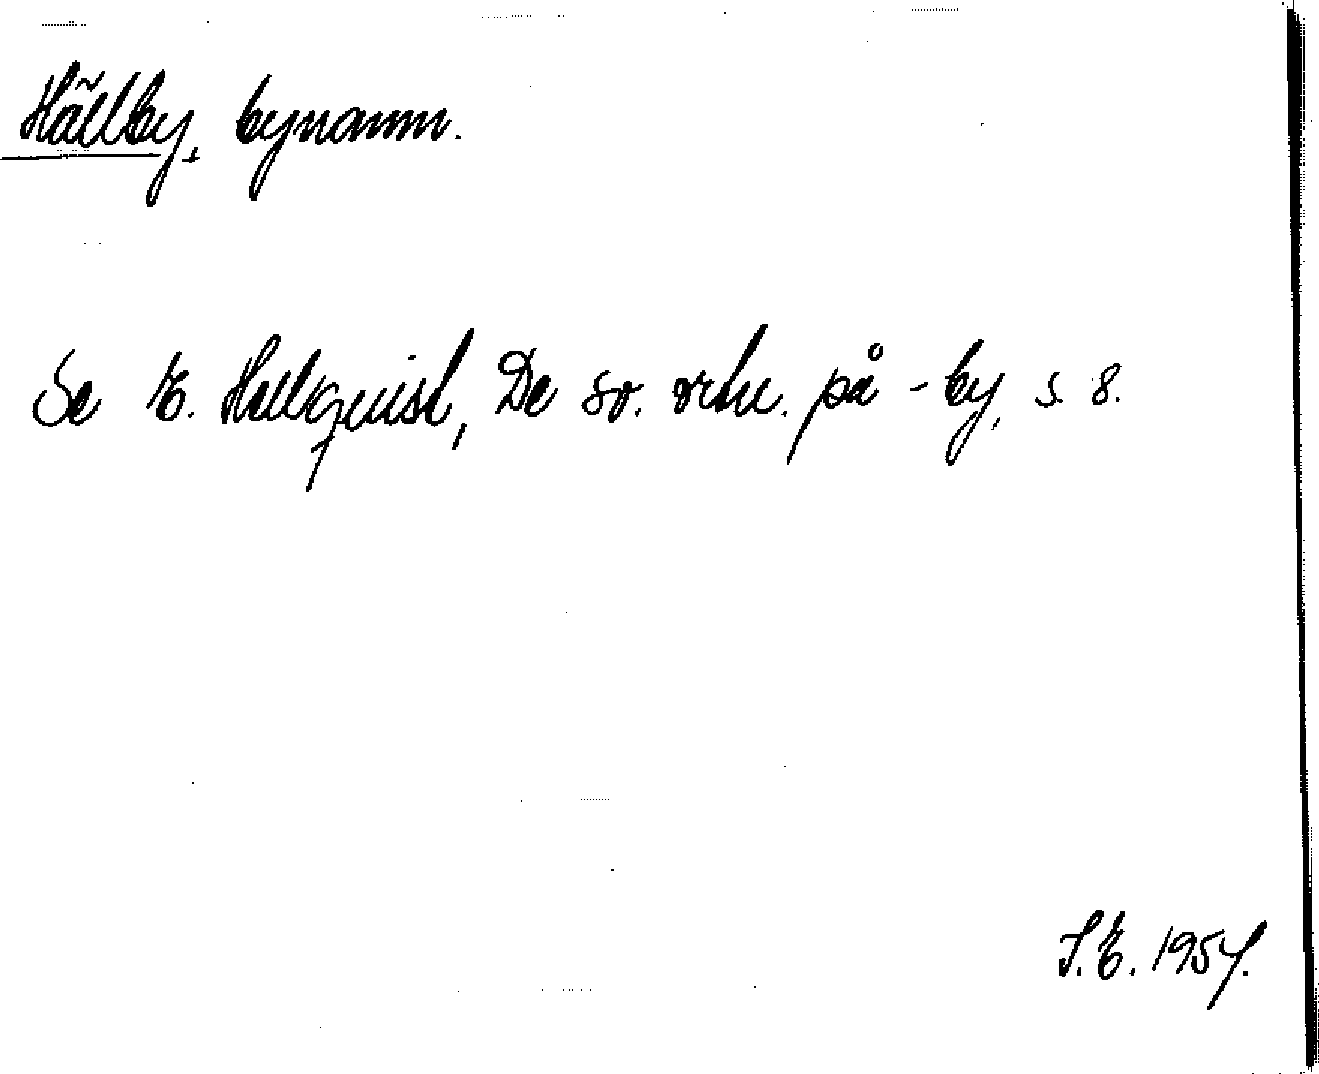 Hällby, bynamn.
Se E. Hellquist, De sv. ortn. på -by, s. 8.
S.E. 1957.